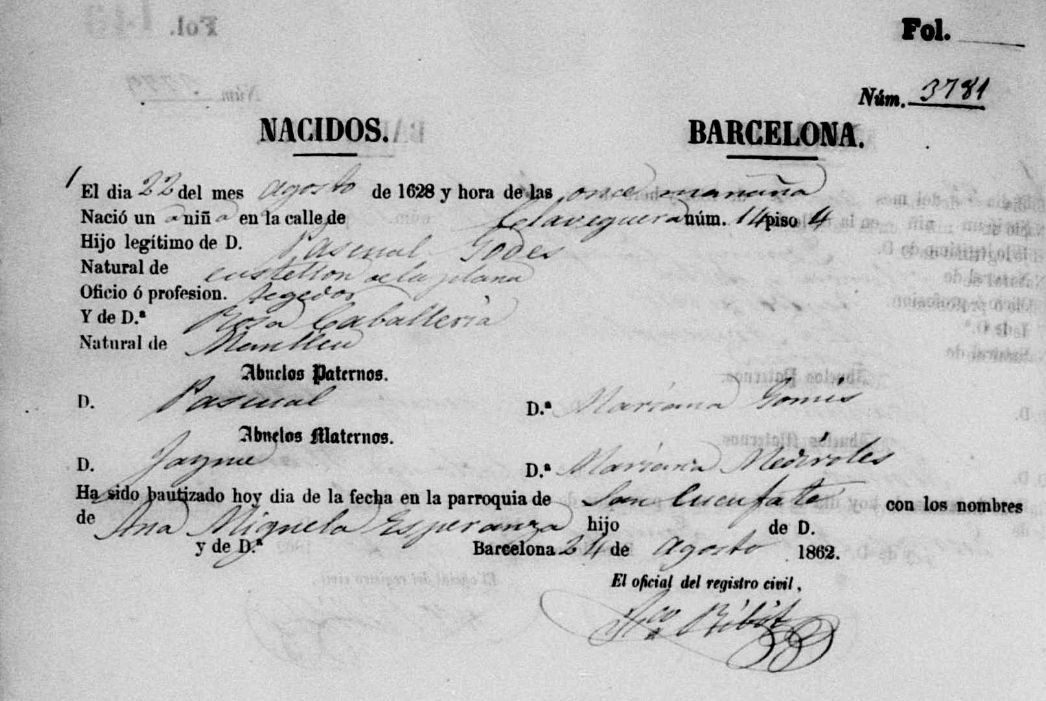 Fol.
Núm. 3781
NACIDOS. BARCELONA.
El dia 22 del mes agosto de 1628 y hora de las once mañana
Nació un a niñ a en la calle de Claveguera núm. 14 piso 4
Hijo legítimo de D. Pascual Godes
Natural de castellon de la plana
Oficio ó profesion. tegedor
Y de D.ª Rosa Caballeria
Natural de Manlleu
Abuelos Paternos.
D. Pascual D.ª Mariana Gomis
Abuelos Maternos.
D. Jayme D.ª Mariana
Ha sido bautizado hoy dia de la fecha en la parroquia de San Cucufate con los nombres
de Ana Miguela Esperanza hijo de D.
y de D.ª Barcelona 24 de agosto 1862.
El oficial del registro civil,
Fco Ribot